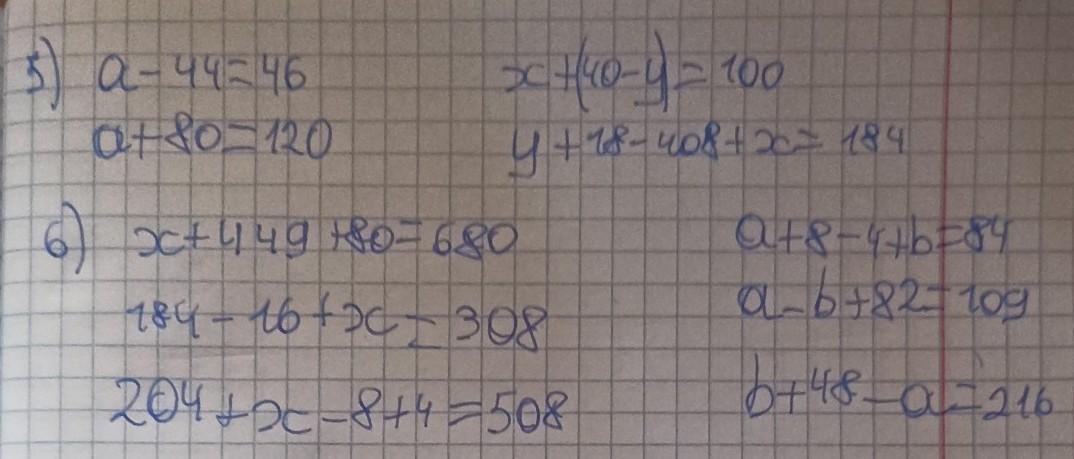 5) a-44=46 x+(40-y)=100
a+80=120 y+18-408+x=184
6) x+449+80=680 a+8-4+b=84
184-16+x=308 a-b+82=109
204+x-8+4=508 b+48-a=216